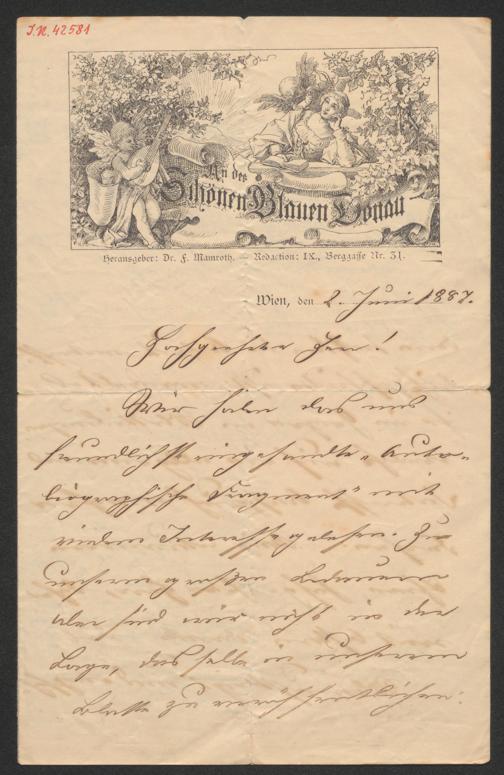 I.N. 42581
An der
Schönen Blauen Donau
Herausgeber: Dr. F. Mamroth. — Redaction: IX., Berggasse Nr. 31.
Wien, den 2. Juni 1887.
Hochgeehrter Herr!
Wir haben das uns
freundlichst eingesandte „Auto-
biographische Fragment" mit
vielem Interesse gelesen. Zu
unserem großen Bedauern
aber sind wir nicht in der
Lage, dasselbe in unserem
Blatte zu veröffentlichen.